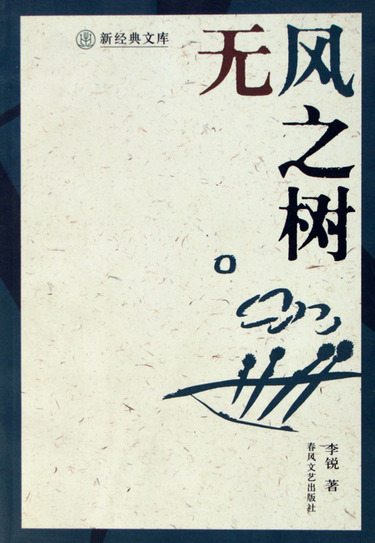 新经典文库
无风之树
李锐 著
春风文艺出版社